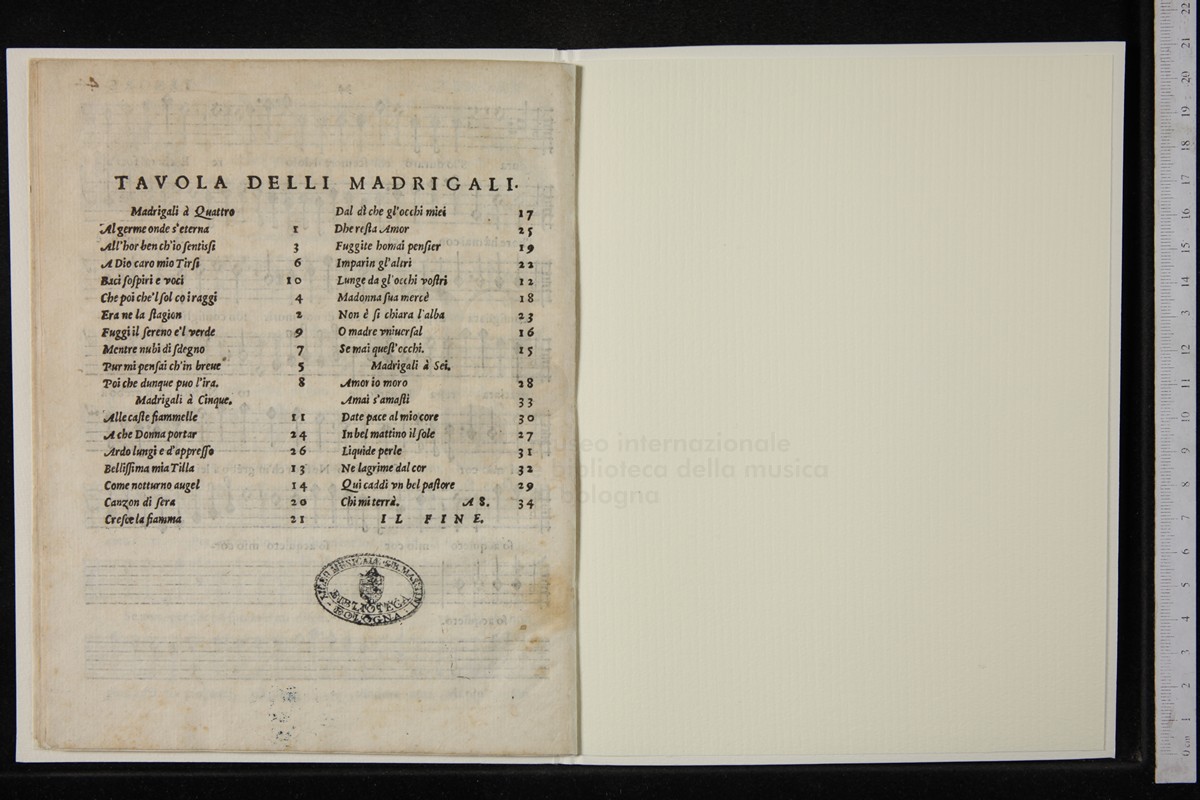 TAVOLA DELLI MADRIGALI.
Madrigali à Quattro
Al germe onde s'eterna 1
All'hor ben ch'io ſentiſsi 3
A Dio caro mio Tirſi 6
Baci ſoſpiri e voci 10
Che poi che'l ſol co i raggi 4
Era ne la ſtagion 2
Fuggi il ſereno e'l verde 9
Mentre nubi di ſdegno 7
Pur mi penſai ch'in breue 5
Poi che dunque puo l'ira. 8
Madrigali à Cinque.
Alle caſte fiammelle 11
A che Donna portar 24
Ardo lungi e d'appreſſo 26
Belliſſima mia Tilla 13
Come notturno augel 14
Canzon di ſera 20
Creſce la fiamma 21
Dal dì che gl'occhi miei 17
Dhe reſta Amor 25
Fuggite homai penſier 19
Imparin gl'altri 22
Lunge da gl'occhi voſtri 12
Madonna ſua mercè 18
Non è ſi chiara l'alba 23
O madre vniuerſal 16
Se mai queſt'occhi. 15
Madrigali à Sei.
Amor io moro 28
Amai s'amaſti 33
Date pace al mio core 30
In bel mattino il ſole 27
Liquide perle 31
Ne lagrime dal cor 32
Qui caddi vn bel paſtore 29
Chi mi terrà. A 8. 34
IL FINE.
LICEO MUSICALE G.B. MARTINI
BIBLIOTECA
BOLOGNA
museo internazionale
biblioteca della musica
bologna